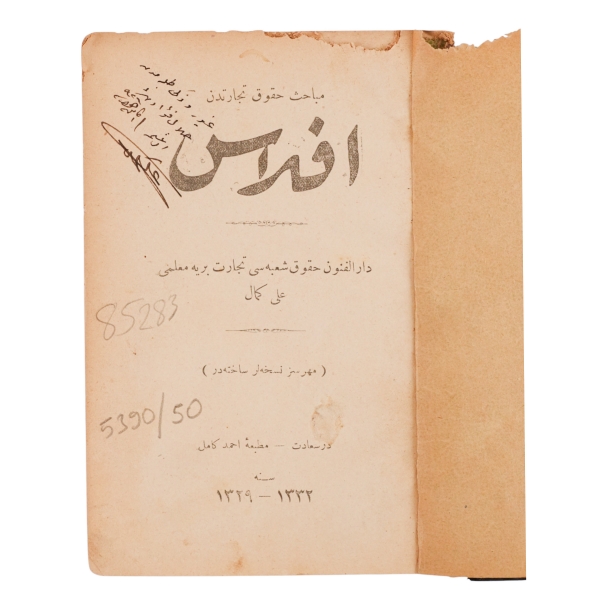 مباحث حقوق تجارتدن
افلاس
دار الفنون حقوق شعبه سی تجارت بریه معلمی
علی کمال
( مهرسز نسخه لر ساخته در )
در سعادت — مطبعهٔ احمد کامل
سنه
١٣٣٢ — ١٣٢٩
85283
5390/50